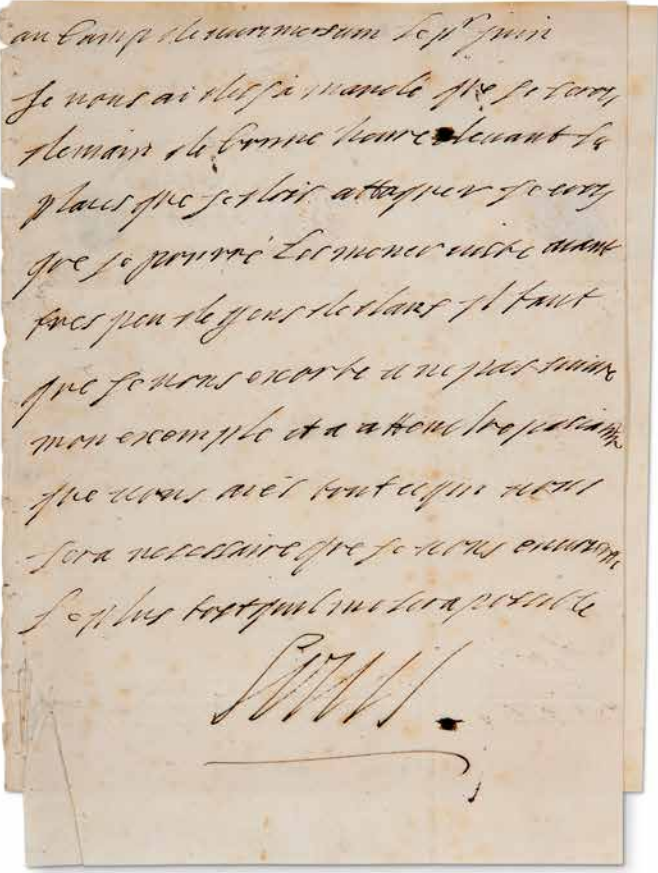 au Camp de le pr juin
Je vous ai desja mandé que je serois
demain de bonne heure devant la
place que je dois attaquer je croy
que je pourré les mener viste aiant
tres peu de gens dedans il faut
que je vous exorte a ne pas suivre
mon exemple et a attendre
que vous aiés tout ce qui vous
sera nesessaire que je vous
le plus tost quil me sera posible
Louis